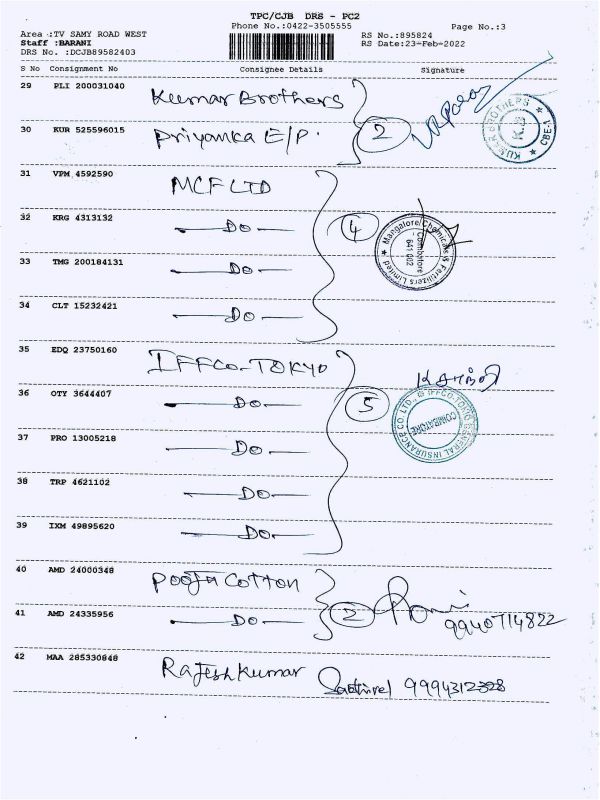 TPC/CJB DRS - PC2
Phone No.:0422-3505555
Page No.:3
Area :TV SAMY ROAD WEST
Staff :BARANI
DRS No. :DCJB89582403
RS No.:895824
RS Date:23-Feb-2022
S No Consignment No Consignee Details Signature
29 PLI 200031040 Kumar Brothers
KUMAR BROTHERS ★ CBE-1 ★
K.S
30 KUR 525596015 Priyanka E/P. 2
31 VPM 4592590 MCF LTD
32 KRG 4313132 —DO— 4
Mangalore Chemicals & Fertilizers Limited ★
Coimbatore
641 002
33 TMG 200184131 —DO—
34 CLT 15232421 —DO—
35 EDQ 23750160 IFFCO-TOKYO
36 OTY 3644407 —DO— 5
IFFCO-TOKIO GENERAL INSURANCE CO. LTD.,
COIMBATORE
37 PRO 13005218 —DO—
38 TRP 4621102 —DO—
39 IXM 49895620 —DO—
40 AMD 24000348 Pooja Cotton
41 AMD 24335956 —DO— 2 9940714822
42 MAA 285330848 Rajesh Kumar Sakthivel 9994312328